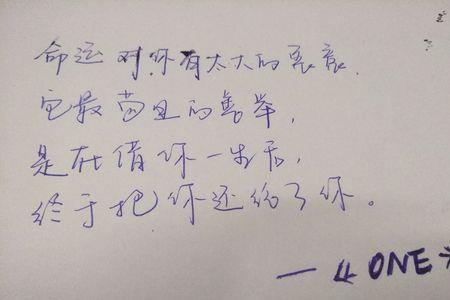 命运对你有太大的
它最苟且的善举,
是在借你一生后,
终于把你还给了你。
—《ONE